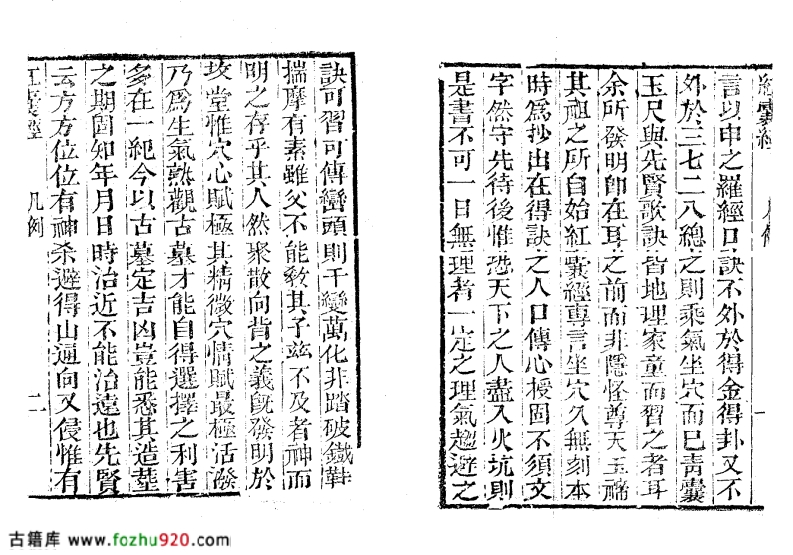 紅囊經 凡例 一
言以申之羅經口訣不外於得金得卦又不
外於三七二八總之則乘氣坐穴而已靑囊
玉尺與先賢歌訣皆地理家童而習之者耳
余所發明卽在耳之前而非隱怪尊天玉
其祖之所自始紅囊經專言坐穴久無刻本
時爲抄出在得訣之人口傳心授固不須文
字然守先待後惟恐天下之人盡入火坑則
是書不可一日無理者一定之理氣趨避之
訣可習可傳巒頭則千變萬化非踏破鐵鞋
揣摩有素雖父不能敎其子茲不及者神而
明之存乎其人然聚散向背之義旣發明於
坟堂惟穴心賦極其精微穴情賦最極活潑
乃爲生氣熟觀古墓才能自得選擇之利害
多在一紀今以古墓定吉凶豈能悉其造塟
之期固知年月日時治近不能治遠也先賢
云方方位位有神杀避得山逼向又侵惟有
紅囊經 凡例 二
古籍库 www.fozhu920.com